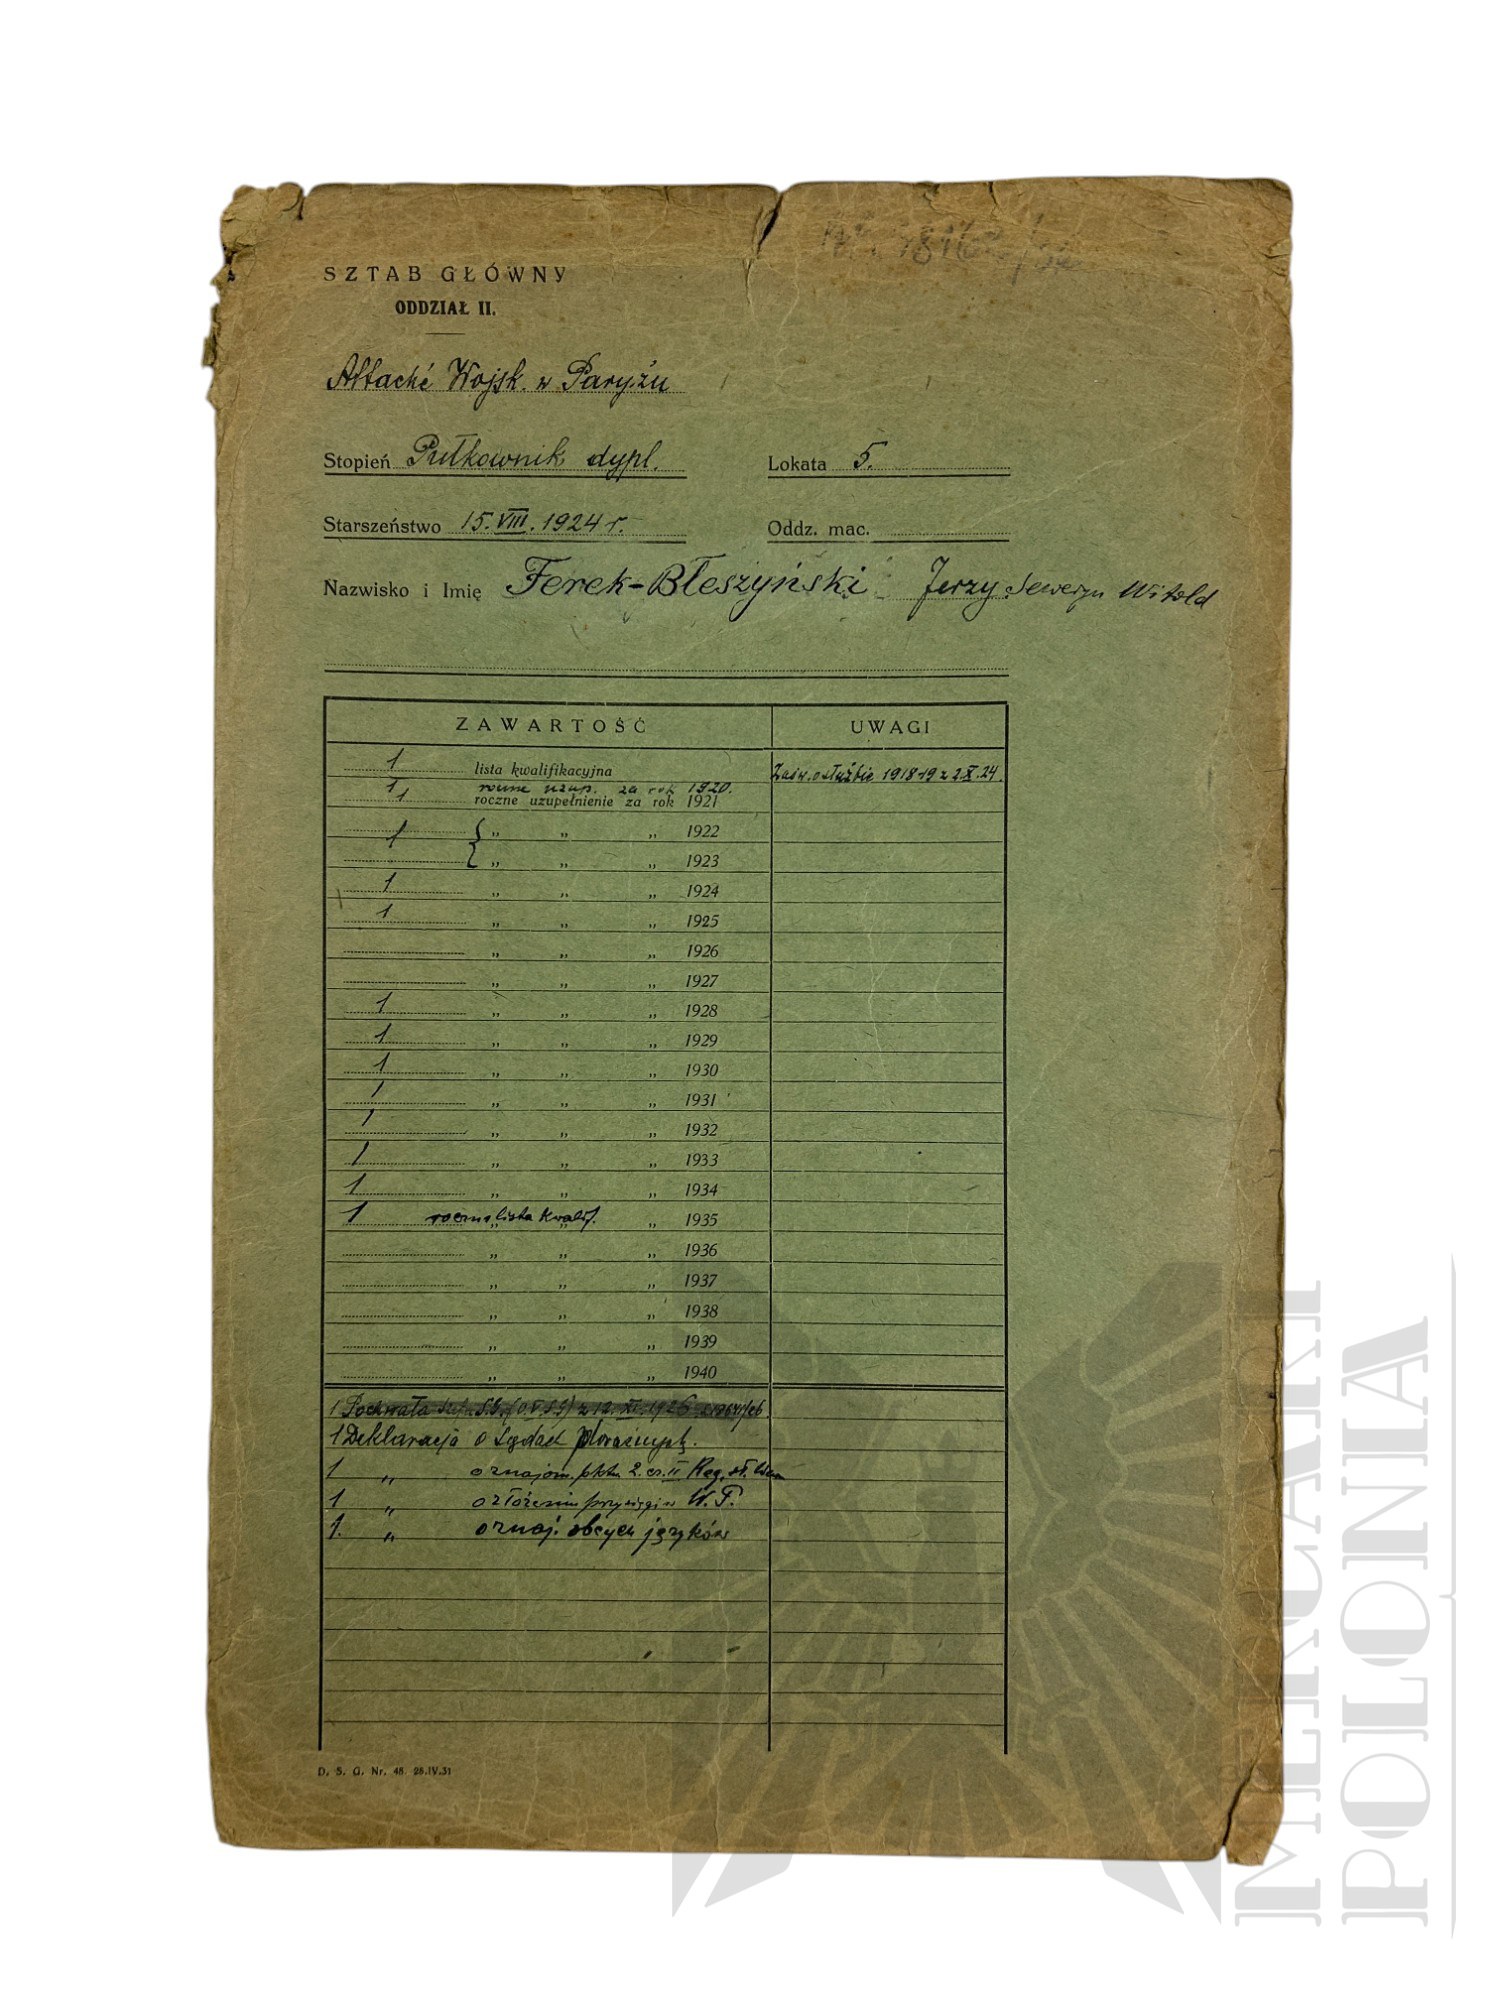 SZTAB GŁÓWNY
ODDZIAŁ II.
Attaché Wojsk. w Paryżu
Stopień Pułkownik dypl. Lokata 5.
Starszeństwo 15. VIII. 1924 r. Oddz. mac.
Nazwisko i Imię Ferek-Błeszyński Jerzy Seweryn Witold
ZAWARTOŚĆ UWAGI
1 lista kwalifikacyjna Zaśw. o służbie 1918-19 z 2.X.24.
1 roczne uzup. za rok 1920.
1 roczne uzupełnienie za rok 1921
1 { „ „ „ 1922
„ „ „ 1923
1 „ „ „ 1924
1 „ „ „ 1925
„ „ „ 1926
„ „ „ 1927
1 „ „ „ 1928
1 „ „ „ 1929
1 „ „ „ 1930
1 „ „ „ 1931
1 „ „ „ 1932
1 „ „ „ 1933
1 „ „ „ 1934
1 roczna lista kwalif. „ 1935
„ „ „ 1936
„ „ „ 1937
„ „ „ 1938
„ „ „ 1939
„ „ „ 1940
1 Pochwała S.G. z 12. XI. 1926
1 Deklaracja o
1 „ o znajom. pktu 2. II Reg.
1 „ o złożeniu przysięgi w W.P.
1. „ o znaj. obcych języków
D. S. G. Nr. 48 28.IV.31
MILITARIA
POLONIA